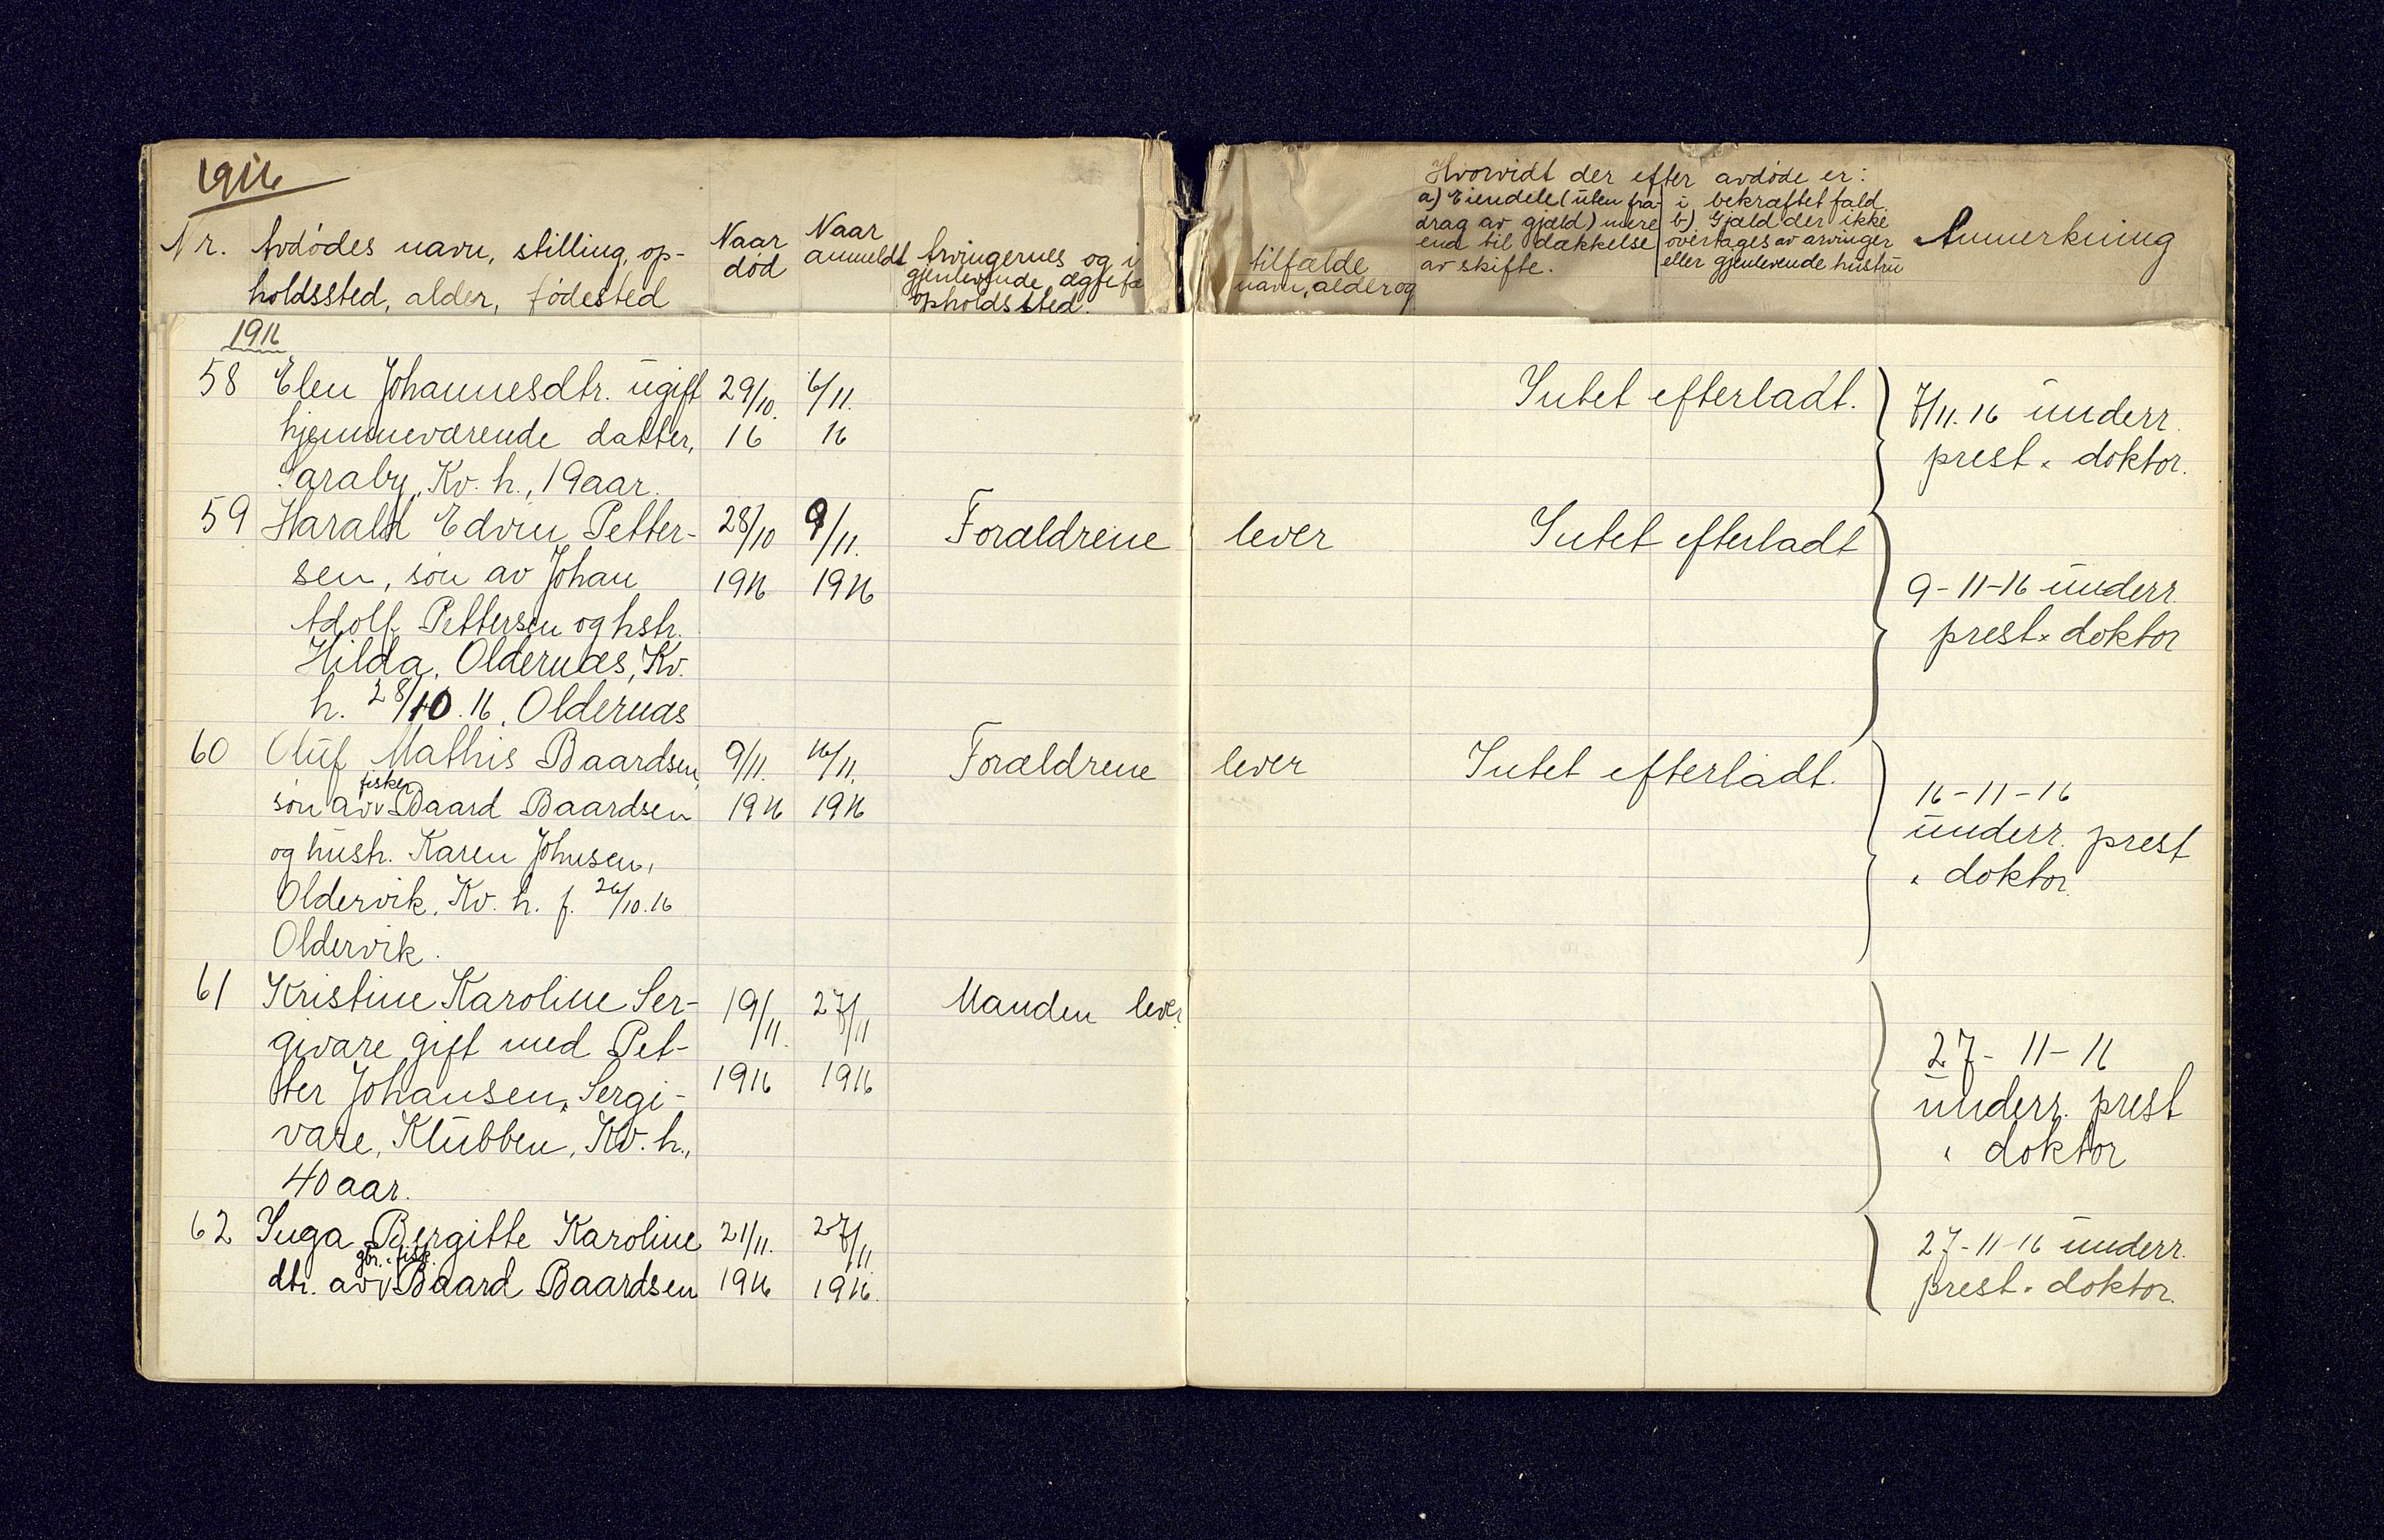 1916
Nr. Avdødes navn, stilling, op-
holdssted, alder, fødested
Naar
død
Naar
anmeldt
Arvingernes og i
gjenlevende ægtefæ
opholdssted.
tilfælde
navn, alder og
Hvorvidt der efter avdøde er:
a) Eiendele (uten fra-
drag av gjæld) mere
end til dækkelse
av skifte.
i bekræftet fald
b) Gjæld der ikke
overtages av arvinger
eller gjenlevende hustru
Anmerkning
1916
58 Elen Johannesdtr. ugift 29/10. 6/11. Intet efterladt. 7/11.16 underr.
hjemmeværende datter, 16 16 prest & doktor.
Saraby, Kv. h., 19 aar.
59 Harald Edvin Petter- 28/10 9/11. Forældrene lever Intet efterladt
sen, søn av Johan 1916 1916 9-11-16 underr.
Adolf Pettersen og hstr. prest & doktor
Hilda, Oldernæs, Kv.
h. 28/10.16, Oldernæs
60 Oluf Mathis Baardsen, 9/11. 16/11. Forældrene lever Intet efterladt.
fisker
søn av Baard Baardsen 1916 1916 16-11-16
og hustr. Karen Johnsen, underr. prest
Oldervik, Kv. h. f. 26/10.16 & doktor.
Oldervik.
61 Kristine Karoline Ser- 19/11. 27/11 Manden lever.
givare gift med Pet- 27-11-16
ter Johansen, Sergi- 1916 1916 underr. prest
vare, Klubben, Kv. h., & doktor
40 aar.
62 Inga Bergitte Karoline 21/11. 27/11 27-11-16 underr.
gbr. & fisk.
dtr. av Baard Baardsen 1916 1916. prest & doktor.